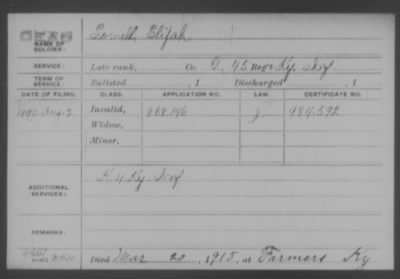 DEAD
NAME OF SOLDIER: Powell, Elijah
SERVICE: Late rank, Co. G, 45 Reg't Ky. Inf
TERM OF SERVICE: Enlisted , 1 Discharged , 1
DATE OF FILING. CLASS. APPLICATION NO. LAW. CERTIFICATE NO.
Aug. Invalid, 868.146 J. 984.592
Widow,
Minor,
ADDITIONAL SERVICES: K 4 Ky. Inf
REMARKS:
Died Mar , 1915, at Farmers Ky